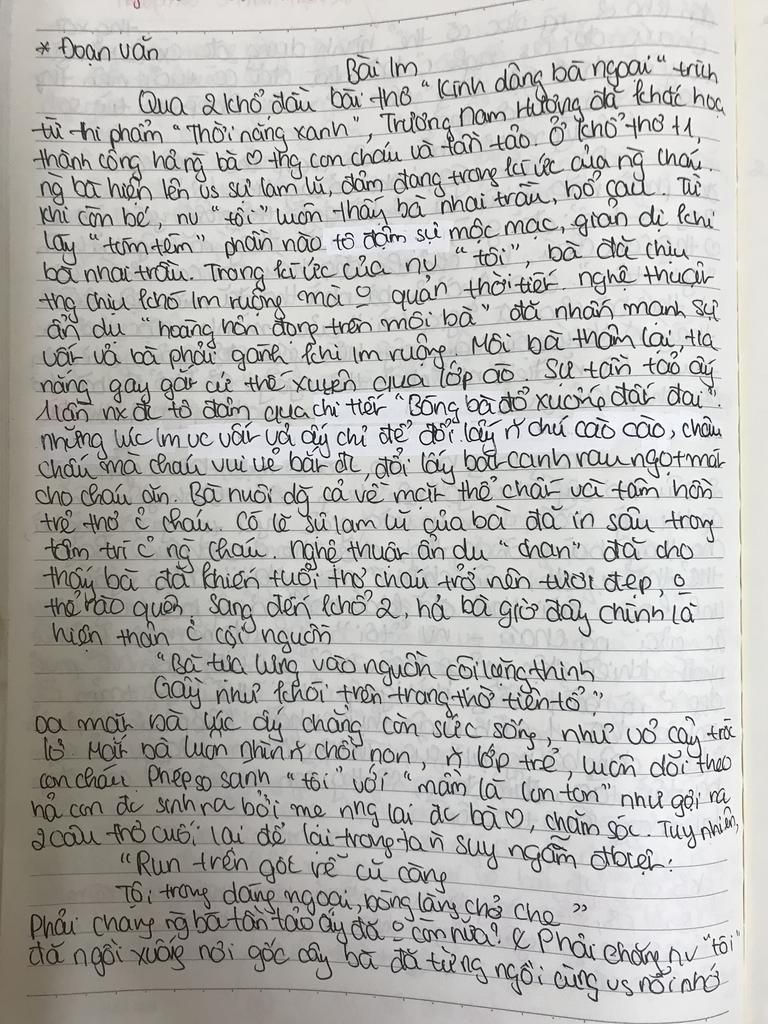 * Đoạn văn
Bài lm
Qua 2 khổ đầu bài thơ "Kính dâng bà ngoại" trích
từ thi phẩm "Thời nắng xanh", Trương Nam Hương đã khắc họa
thành công hả ng bà ♡ thg con cháu và tần tảo. Ở khổ thơ t1,
ng bà hiện lên vs sự lam lũ, đảm đang trong kí ức của ng cháu.
khi còn bé, nv "tôi" luôn thấy bà nhai trầu, bổ cau. Từ
láy "tỏm tẻm" phần nào tô đậm sự mộc mạc, giản dị khi
bà nhai trầu. Trong kí ức của nv "tôi", bà đã chịu
thg chịu khó lm ruộng mà o quản thời tiết. nghệ thuật
ẩn dụ "hoàng hôn đọng trên môi bà" đã nhấn mạnh sự
vất vả bà phải gánh khi lm ruộng. Môi bà thâm lại, tia
nắng gay gắt cứ thế xuyên qua lớp áo. Sự tần tảo ấy
1 lần nx đc tô đậm qua chi tiết "Bóng bà đổ xuống đất đai".
những lúc lm vc vất vả ấy chỉ để đổi lấy ñ chú cào cào, châu
chấu mà cháu vui vẻ bắt đc, đổi lấy bát canh rau ngọt mát
cho cháu ăn. Bà nuôi dg cả về mặt thể chất và tâm hồn
trẻ thơ c̉ cháu. Có lẽ sự lam lũ của bà đã in sâu trong
tâm trí c̉ ng cháu. nghệ thuật ẩn dụ "chan" đã cho
thấy bà đã khiến tuổi thơ cháu trở nên tươi đẹp, o
thể nào quên. Sang đến khổ 2, hả bà giờ đây chính là
hiện thân c̉ cội nguồn
"Bà tựa lưng vào nguồn cội lặng thinh
Gầy như khói trên trang thờ tiên tổ"
Da mặt bà lúc ấy chẳng còn sức sống, như vỏ cây tróc
lở. Mắt bà luôn nhìn ñ chồi non, ñ lớp trẻ, luôn dõi theo
con cháu. Phép so sánh "tôi" với "mầm lá lon ton" như gợi ra
hả con đc sinh ra bởi mẹ nhg lại đc bà ♡, chăm sóc. Tuy nhiên,
2 câu thơ cuối lại để lại trong ta ñ suy ngẫm đbiệt:
"Run trên gót rễ cũ càng
Tội trong dáng ngoại, bóng làng chở che"
Phải chăng ng bà tần tảo ấy đã o còn nữa? & Phải chăng nv "tôi"
đã ngồi xuống nơi gốc cây bà đã từng ngồi cùng vs nỗi nhớ